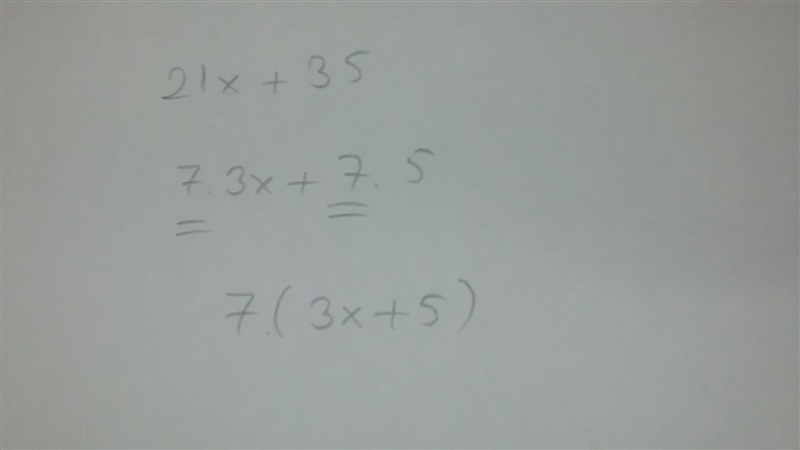 21x + 35
7. 3x + 7. 5
7.( 3x + 5 )